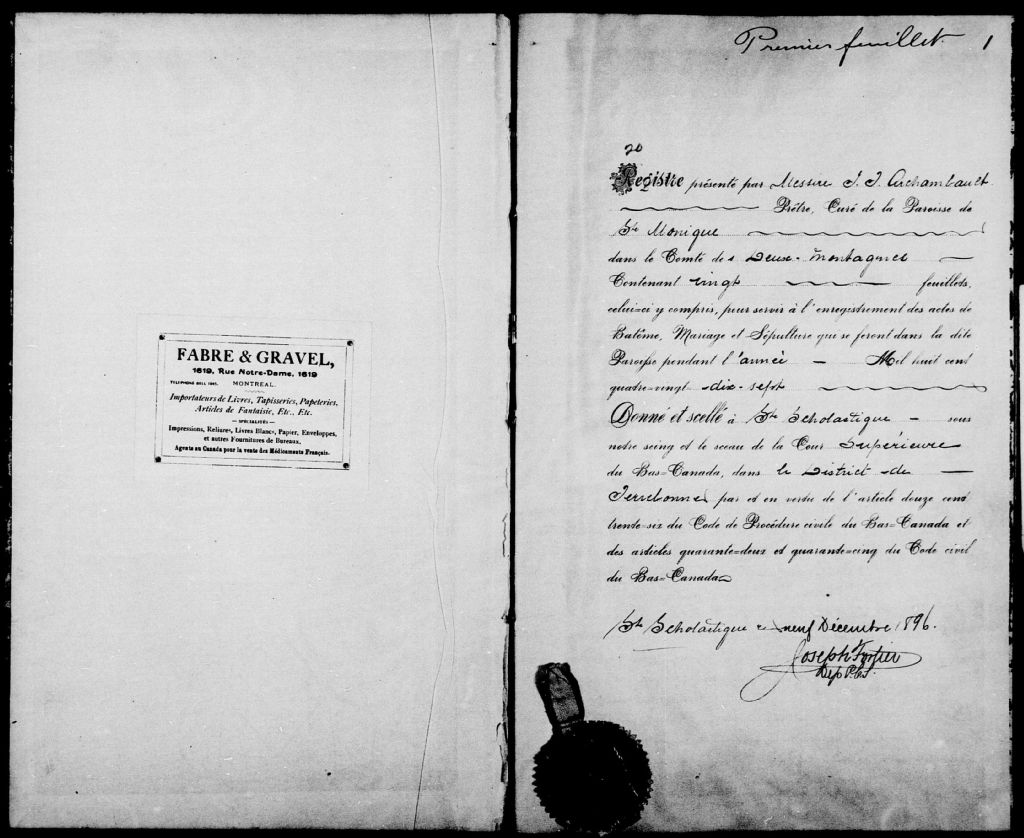 FABRE & GRAVEL,
1619, Rue Notre-Dame, 1619
TELEPHONE BELL
MONTREAL.
Importateurs de Livres, Tapisseries, Papeteries,
Articles de Fantaisie, Etc., Etc.
— SPÉCIALITÉS —
Impressions, Reliures, Livres Blancs, Papier, Enveloppes,
et autres Fournitures de Bureaux.
Agents au Canada pour la vente des Médicaments Français.
Premier feuillet 1
20
Registre présenté par Messire J. J. Archambault
Prêtre, Curé de la Paroisse de
Ste Monique
dans le Comté des Deux-Montagnes —
Contenant vingt feuillets,
celui=ci y compris, pour servir à l'enregistrement des actes de
Batême, Mariage et Sépulture qui se feront dans la dite
Paroisse pendant l'année — Mil huit cent
quatre=vingt dix-sept
Donné et scellé à Ste Scholastique — sous
notre seing et le sceau de la Cour Supérieure
du Bas=Canada, dans le District de —
Terrebonne par et en vertu de l'article douze cent
trente=six du Code de Procédure civile du Bas=Canada et
des articles quarante=deux et quarante=cinq du Code civil
du Bas=Canada
Ste Scholastique ce neuf Décembre 1896.
Joseph Fortier
Dep P.C.S.